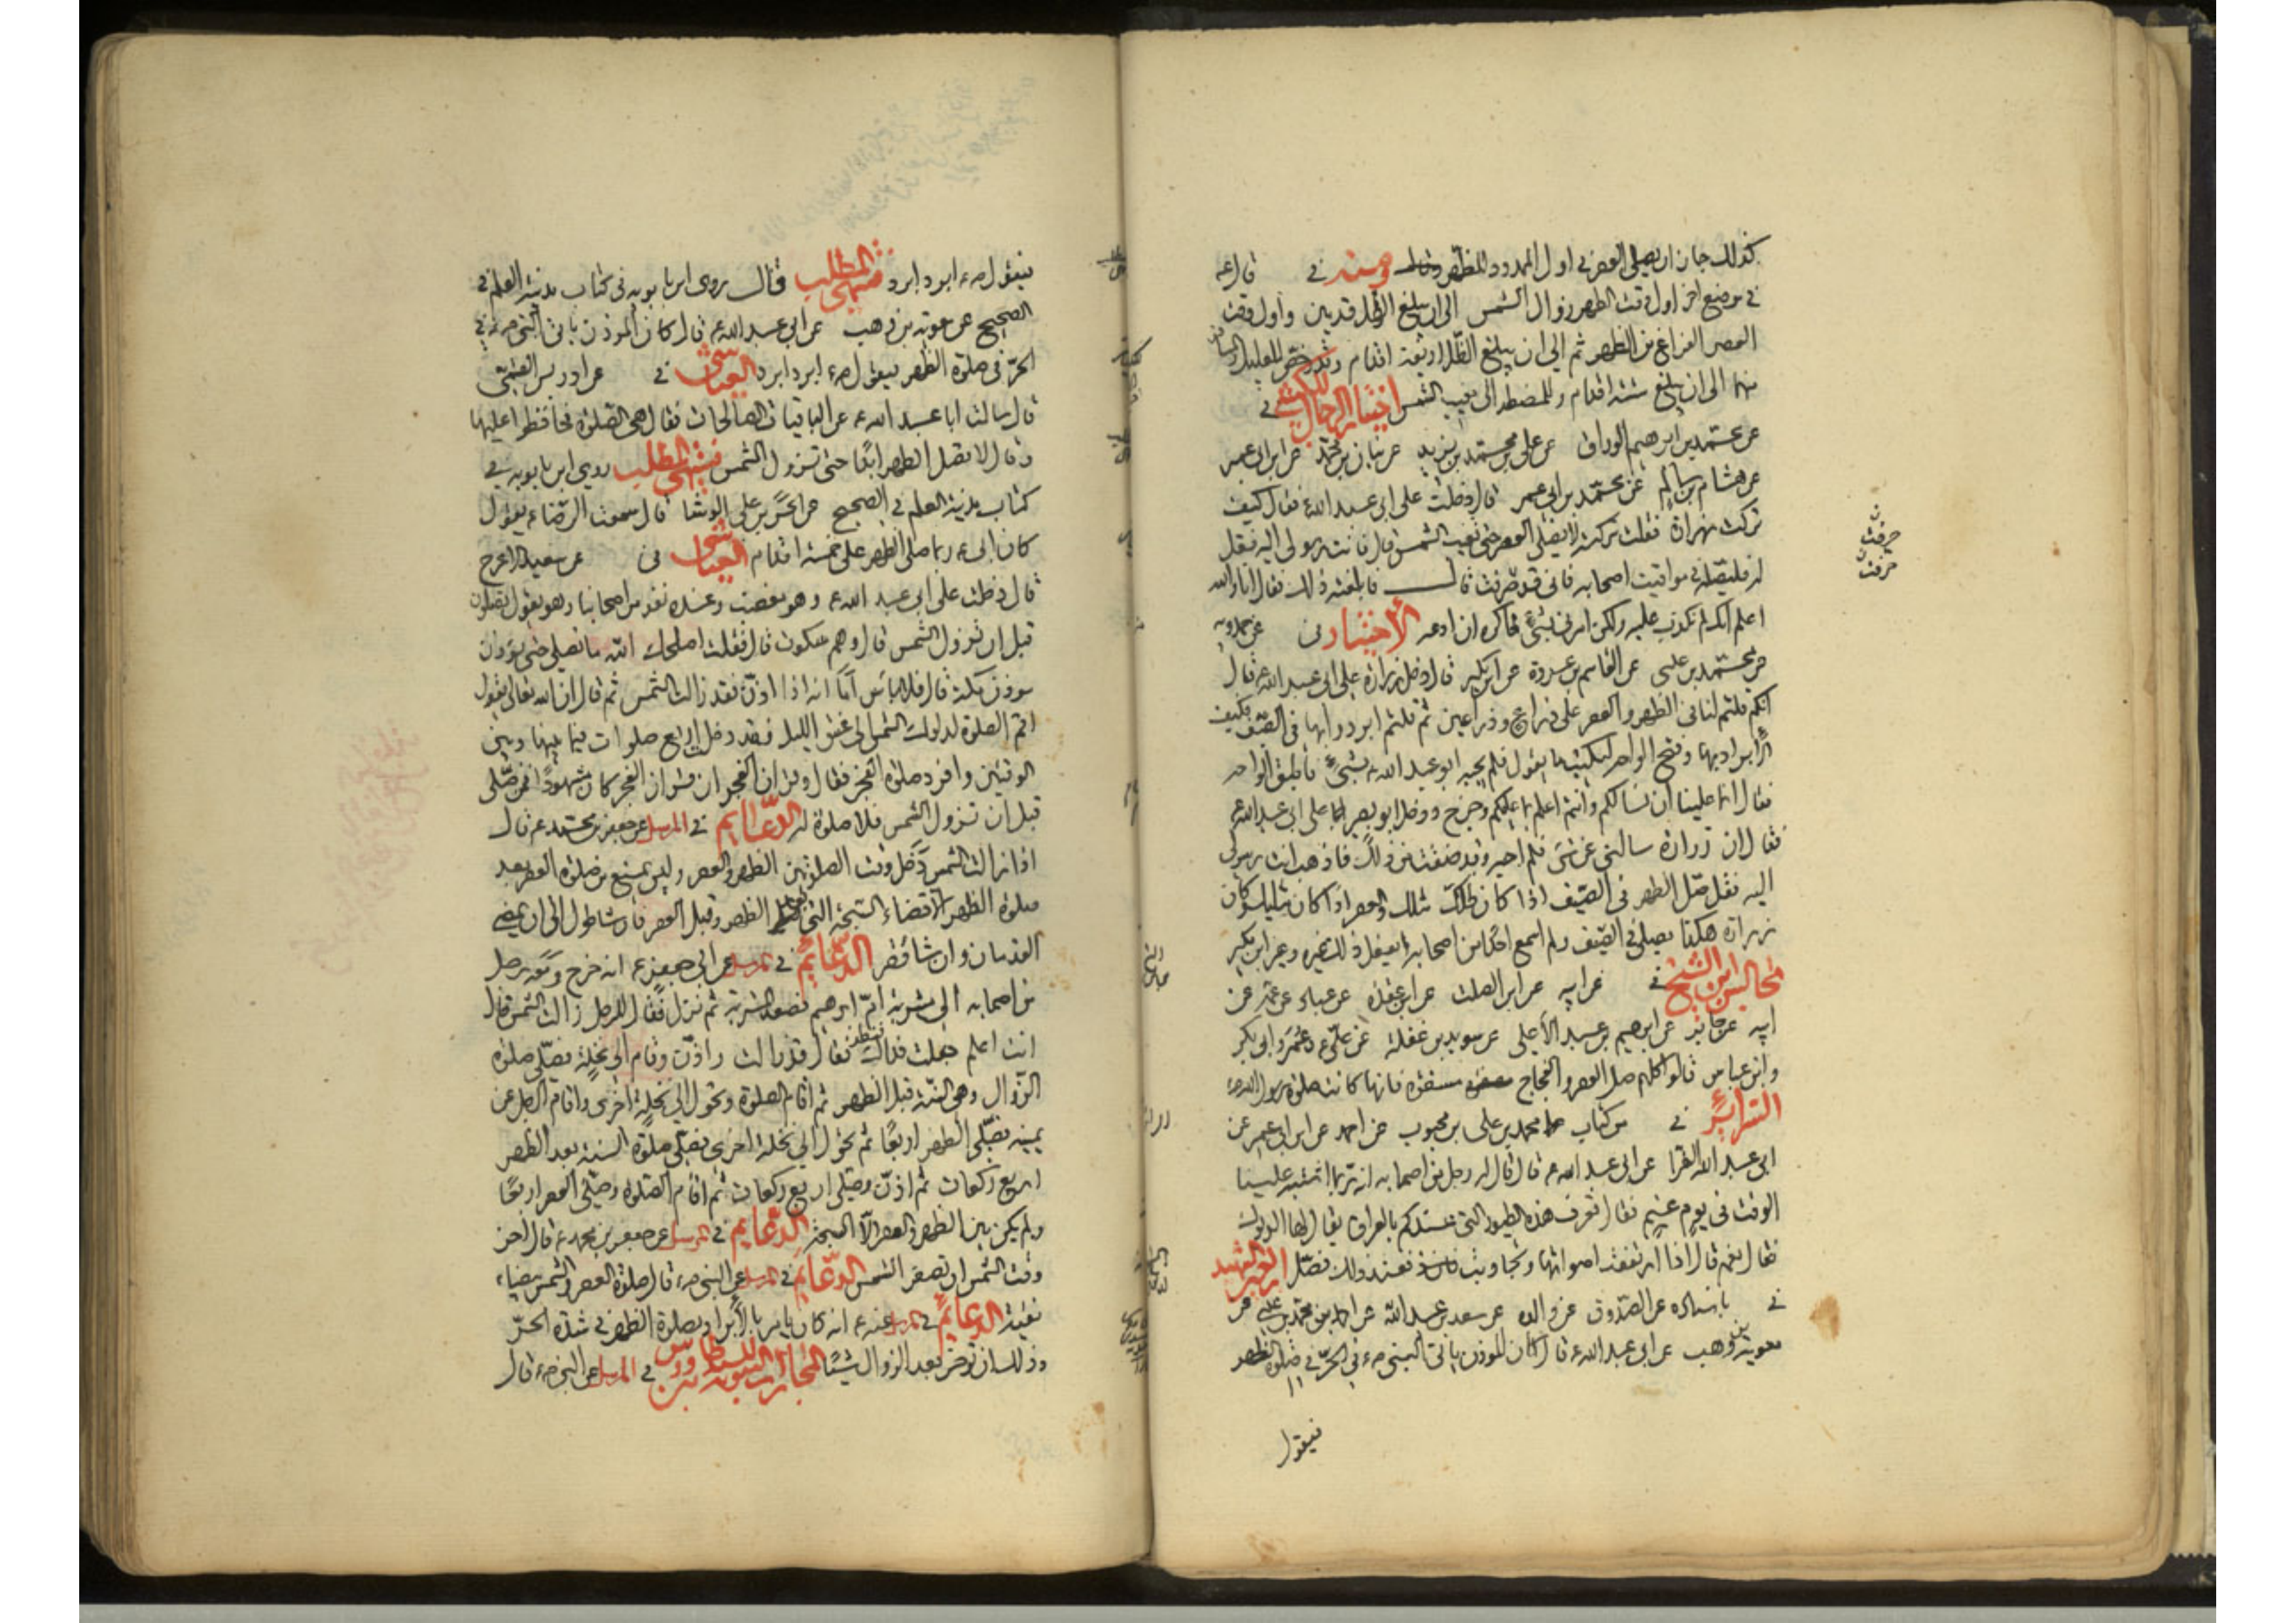 كذلك جاز ان يصلى العصر فى اول الممدود للظهر ومنه فى قال ع
فى موضع اخر اول وقت الظهر زوال الشمس الى ان يبلغ الظل قدمين واول وقت
العصر الفراغ من الظهر ثم الى ان يبلغ الظل اربعة اقدام وقد رخص للعليل والمسافر
منها الى ان يبلغ ستة اقدام وللمضطر الى مغيب الشمس اختيار الرجال للكشى فى
عن محمد بن ابرهيم الوراق عن على بن محمد بن يزيد عن بنان بن محمد عن ابن ابى عمير
عن هشام بن سالم عن محمد بن ابى عمير قال دخلت على ابى عبد الله ع فقال كيف
تركت زرارة فقلت تركته لا يصلى العصر حتى تغيب الشمس قال فانت رسولى اليه فقل
له فليصل فى مواقيت اصحابه فانى قد حرفت قال فابلغته ذلك فقال انا والله
اعلم انك لم تكذب عليه ولكن امرنى بشئ فاكره ان ادعه الاختيار فى عن حمدويه
عن محمد بن عيسى عن القاسم بن عروة عن ابن بكير قال دخل زرارة على ابى عبد الله ع قال
انكم قلتم لنا فى الظهر والعصر على ذراع وذراعين ثم قلتم ابردوا بها فى الصيف فكيف
الابراد بها وفتح الواحه ليكتب ما يقول فلم يجبه ابو عبد الله ع بشئ فاطبق الواحه
فقال انما علينا ان نسالكم وانتم اعلم بما عليكم وخرج ودخل ابو بصير على ابى عبد الله ع
فقال ان زرارة سالنى عن شئ فلم اجبه وقد ضقت من ذلك فاذهب انت رسولى
اليه فقل صل الظهر فى الصيف اذا كان ظلك مثلك والعصر اذا كان مثليك وكان
زرارة هكذا يصلى فى الصيف ولم اسمع احدا من اصحابنا يفعل ذلك غيره وغير ابن بكير
مجالس ابن الشيخ فى عن ابيه عن ابن الصلت عن ابن عقدة عن عباد عن عمه عن
ابيه عن جابر عن ابرهيم بن عبد الاعلى عن سويد بن غفلة عن على ع وعمر وابى بكر
وابن عباس قالوا كلهم صل العصر والفجاج مسفرة فانها كانت صلوة رسول الله ص
السرائر فى من كتاب محمد بن على بن محبوب عن احمد عن ابن ابى عمير عن
ابى عبد الله الفرا عن ابى عبد الله ع قال قال له رجل من اصحابه انه ربما اشتبه علينا
الوقت فى يوم غيم فقال تعرف هذه الطيور التى عندكم بالعراق يقال لها الديوك
فقال نعم قال اذا ارتفعت اصواتها وتجاوبت فعند ذلك فصل اربعين الشهيد
فى باسناده عن الصدوق عن والده عن سعد بن عبد الله عن احمد بن محمد بن عيسى عن
معوية بن وهب عن ابى عبد الله ع قال كان المؤذن ياتى النبى ص فى الحر فى صلوة الظهر
فيقول
حرفت
حرفت
فيقول ص ابرد ابرد منتهى المطلب قال روى ابن بابويه فى كتاب مدينة العلم فى
الصحيح عن معوية بن وهب عن ابى عبد الله ع قال كان المؤذن ياتى النبى ص فى
الحر فى صلوة الظهر فيقول ص ابرد ابرد العياشى فى عن ادريس القمى
قال سالت ابا عبد الله ع عن الباقيات الصالحات فقال هى الصلوة فحافظوا عليها
وقال لا تصل الظهر ابدا حتى تزول الشمس منتهى المطلب روى ابن بابويه فى
كتاب مدينة العلم فى الصحيح عن الحسن بن على الوشا قال سمعت الرضا ع يقول
كان ابى ع ربما صلى الظهر على خمسة اقدام العياشى فى عن سعيد الاعرج
قال دخلت على ابى عبد الله ع وهو مغضب وعنده نفر من اصحابنا وهو يقول تصلون
قبل ان تزول الشمس قال وهم سكوت قال فقلت اصلحك الله ما نصلى حتى يؤذن
مؤذن مكة قال فلا باس اما انه اذا اذن فقد زالت الشمس ثم قال ان الله تعالى يقول
اقم الصلوة لدلوك الشمس الى غسق الليل فقد دخل اربع صلوات فيما بينها وبين
الوقتين وافرد صلوة الفجر فقال وقران الفجر ان قران الفجر كان مشهودا فمن صلى
قبل ان تزول الشمس فلا صلوة له الدعايم فى المرسل عن جعفر بن محمد ع قال
اذا زالت الشمس دخل وقت الصلوتين الظهر والعصر وليس يمنع من صلوة العصر بعد
صلوة الظهر الا قضاء السبحة التى بعد الظهر وقبل العصر فان شا طول الى ان يمضى
القدمان وان شا قصر الدعايم فى المرسل عن ابى جعفر ع انه خرج ومعه رجل
من اصحابه الى مشربة ام ابرهيم فصعد المشربة ثم نزل فقال للرجل زالت الشمس قال
انت اعلم جعلت فداك فنظر فقال قد زالت واذن وقام الى نخلة فصلى صلوة
الزوال وهى السنة قبل الظهر ثم اقام الصلوة وتحول الى نخلة اخرى واقام الرجل عن
يمينه فصلى الظهر اربعا ثم تحول الى نخلة اخرى فصلى صلوة السنة بعد الظهر
اربع ركعات ثم اذن وصلى اربع ركعات ثم اقام الصلوة وصلى العصر اربعا
ولم يكن بين الظهر والعصر الا السبحة الدعايم فى المرسل عن جعفر بن محمد ع قال اخر
وقت الشمس ان تصفر الشمس الدعايم فى المرسل عن النبى ص قال صلوة العصر والشمس بيضاء
نقية الدعايم فى المرسل عنه ع انه كان يامر بالابراد بصلوة الظهر فى شدة الحر
وذلك ان تؤخر بعد الزوال شيئا المجازات النبوية فى المرسل عن النبى ص قال